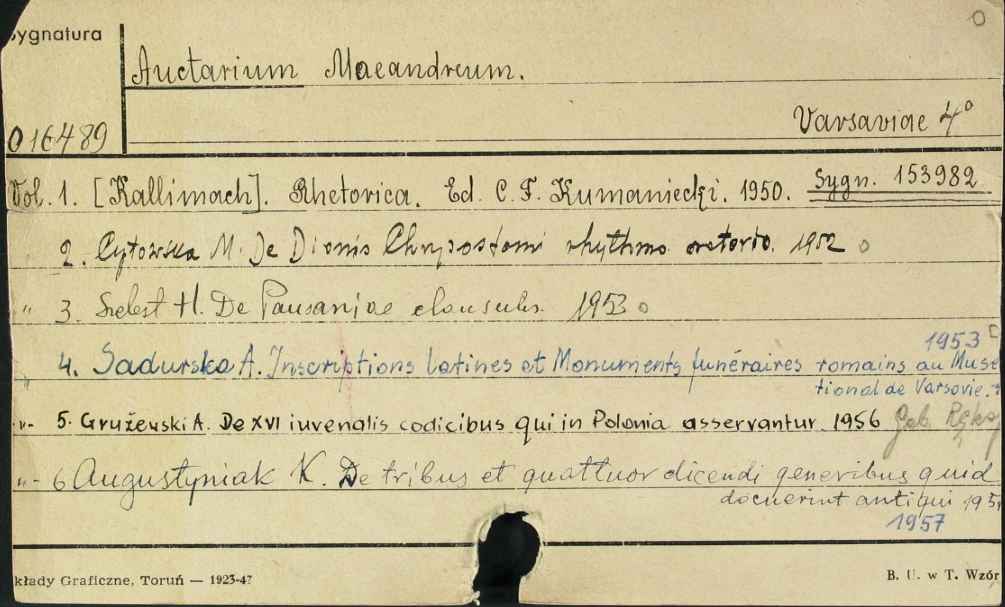 Sygnatura
Auctarium Maeandreum.
Varsaviae 4°
016489
Vol. 1. [Kallimach]. Rhetorica. Ed. C. F. Kumaniecki. 1950. Sygn. 153982
2. Cytowska M. De Dionis Chrysostomi rhythmo oratorio. 1952
" 3. Szelest H. De Pausaniae clausulis. 1953
1953
" 4. Sadurska A. Inscriptions latines et Monuments funéraires romains au Musé
tional de Varsovie.
-"- 5. Grużewski A. De XVI iuvenalis codicibus qui in Polonia asservantur. 1956 Gab. Rękop
-"- 6 Augustyniak K. De tribus et quattuor dicendi generibus quid
docuerint antiqui 195
1957
kłady Graficzne, Toruń — 1923-47
B. U. w T. Wzór